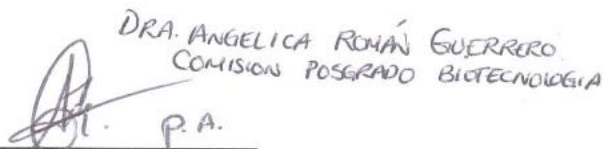 DRA. ANGELICA ROMÁN GUERRERO
COMISION POSGRADO BIOTECNOLOGIA
P. A.